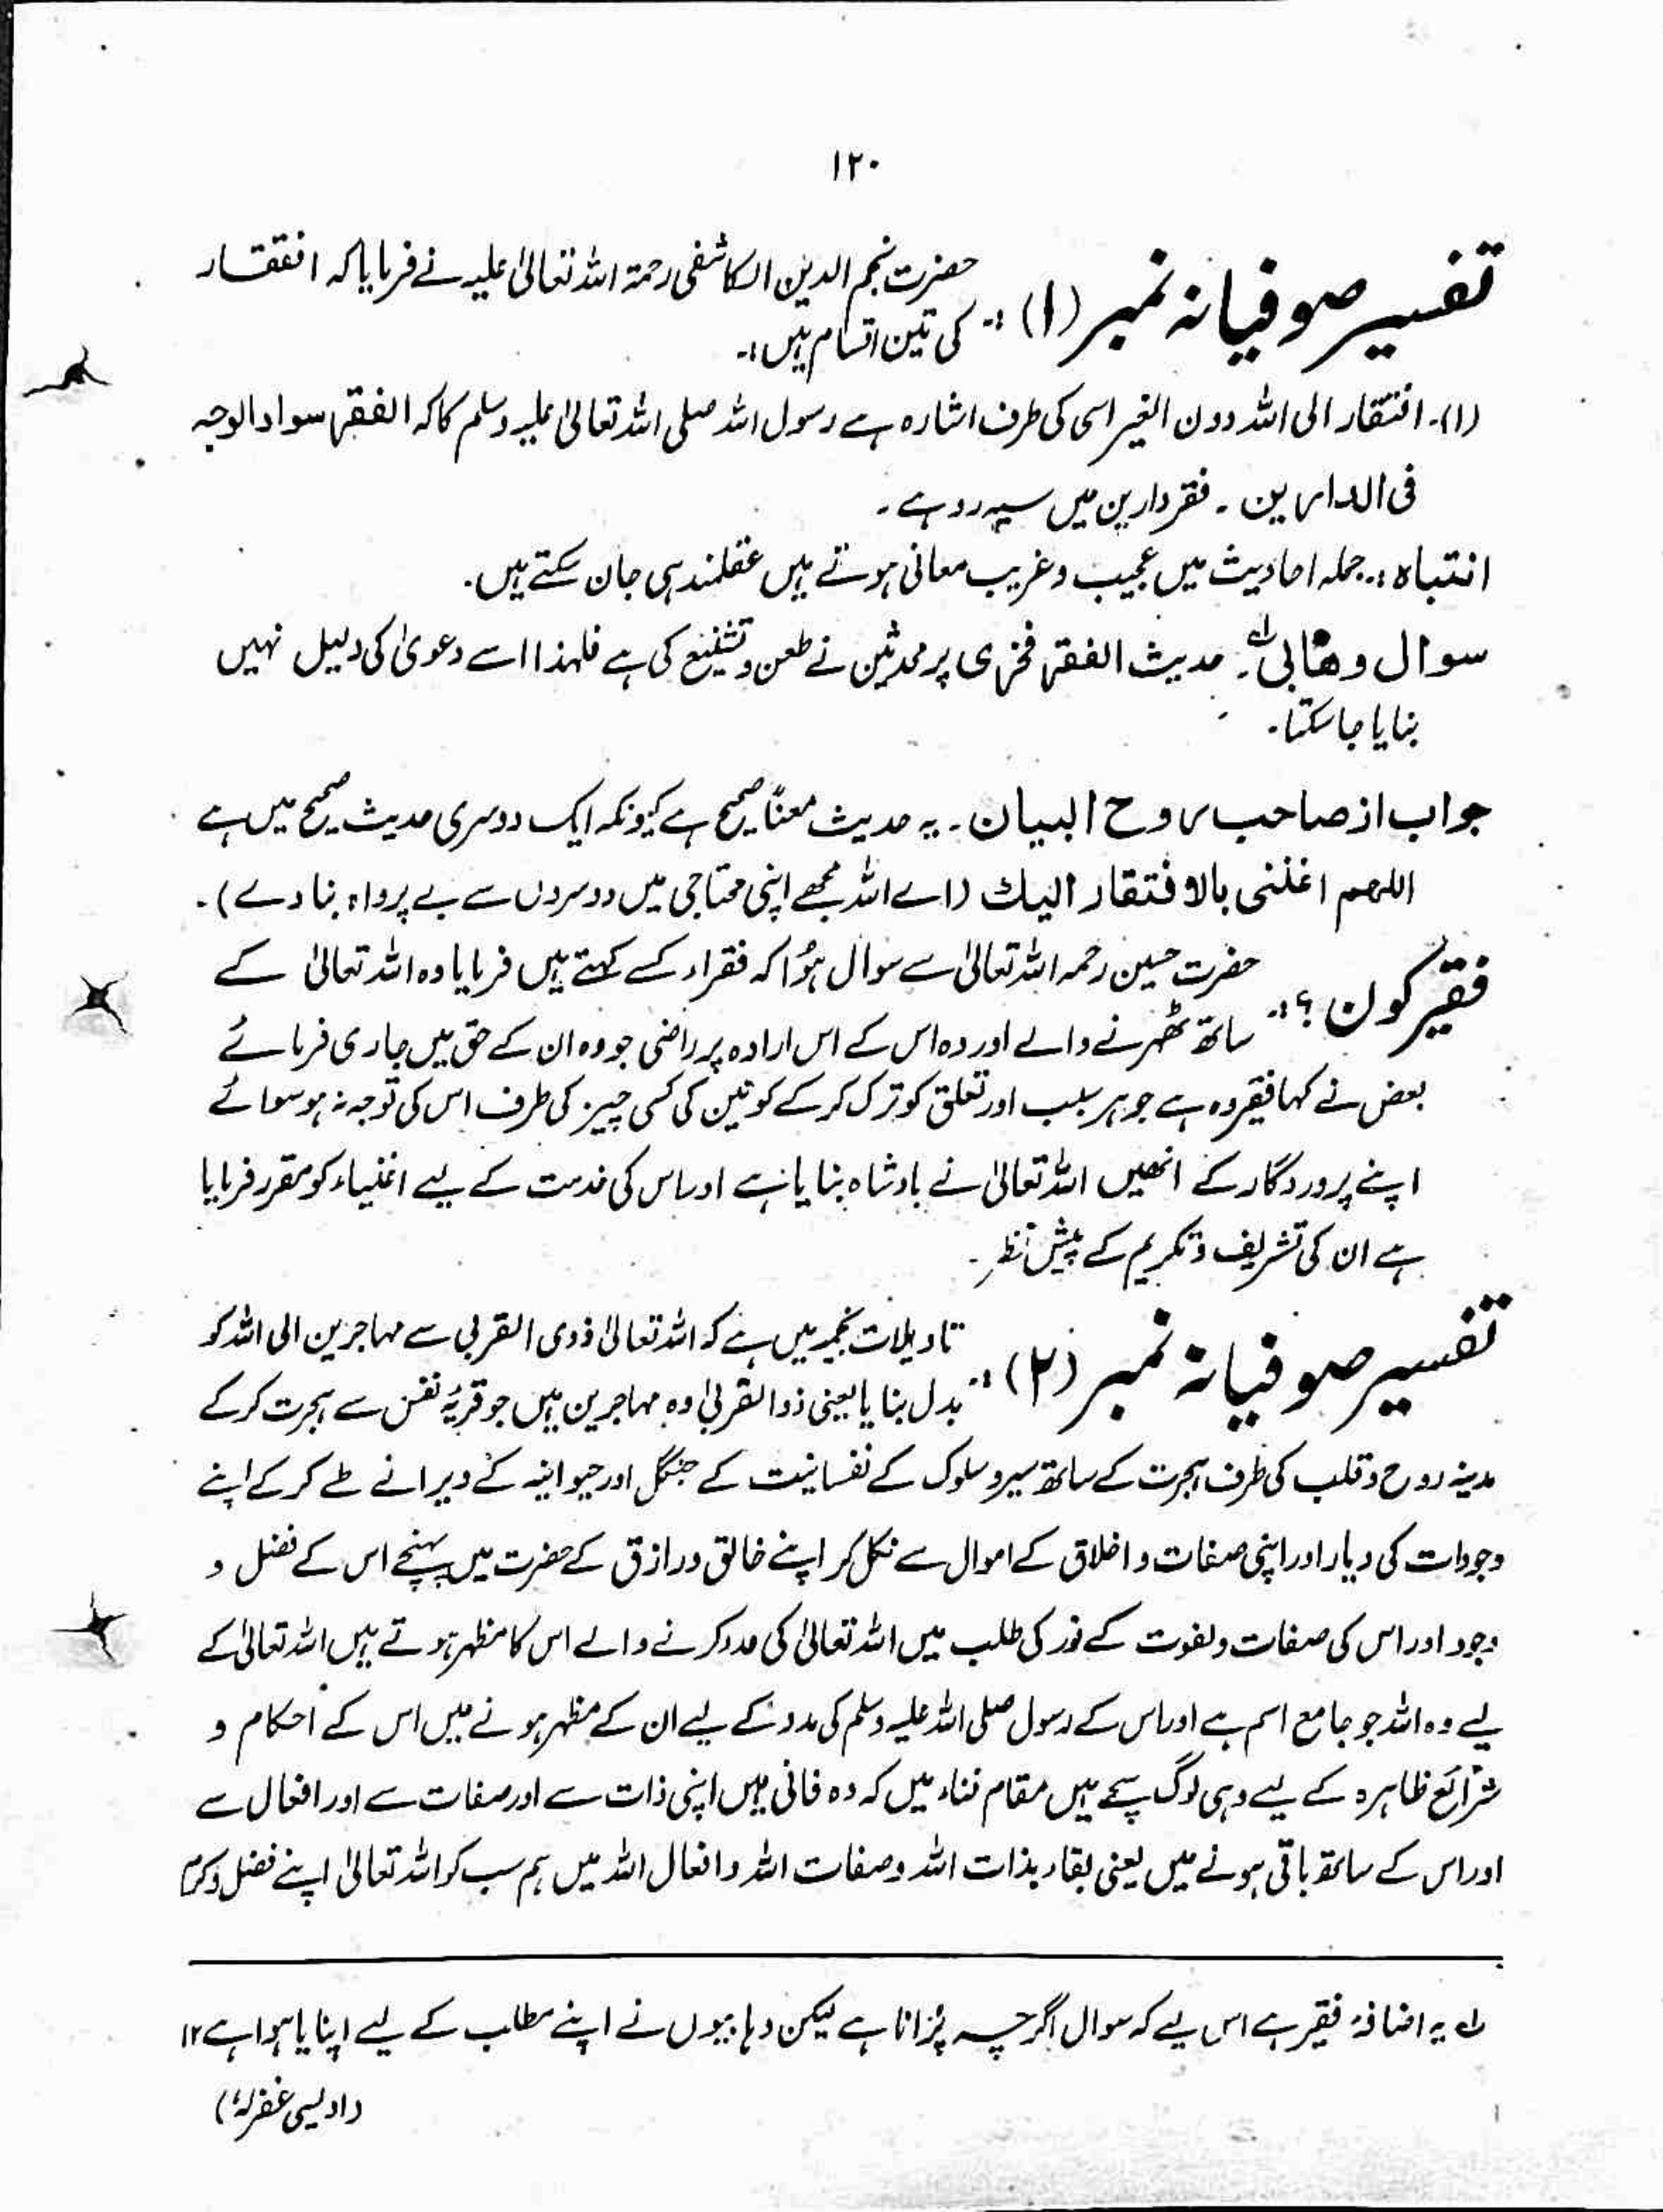 ۱۲۰
تفسیر صوفیانہ نمبر (۱) :- حضرت نجم الدین الکاشفی رحمۃ اللہ تعالیٰ علیہ نے فرمایا کہ افتقار
کی تین اقسام ہیں :-
(۱)۔ افتقار الی اللہ دون الغیر اسی کی طرف اشارہ ہے رسول اللہ صلی اللہ تعالیٰ علیہ وسلم کا کہ الفقر سواد الوجہ
فی الدارین ۔ فقر دارین میں سیہ رو ہے ۔
انتباہ :۔ جملہ احادیث میں عجیب و غریب معانی ہوتے ہیں عقلمند ہی جان سکتے ہیں۔
سوال وھابیؒ لہ :۔ حدیث الفقر فخری پر محدثین نے طعن و تشنیع کی ہے فلہذا اسے دعویٰ کی دلیل نہیں
بنایا جا سکتا۔
جواب از صاحب روح البیان ۔ یہ حدیث معنًا صحیح ہے کیونکہ ایک دوسری حدیث صحیح میں ہے
اللہم اغننی بالافتقار الیك (اے اللہ مجھے اپنی محتاجی میں دوسروں سے بے پرواہ بنا دے)۔
فقیر کون ؟ :- حضرت حسین رحمہ اللہ تعالیٰ سے سوال ہؤا کہ فقراء کسے کہتے ہیں فرمایا وہ اللہ تعالیٰ کے
ساتھ ٹھہرنے والے اور وہ اس کے اس ارادہ پر راضی جو وہ ان کے حق میں جاری فرمائے
بعض نے کہا فقیر وہ ہے جو ہر سبب اور تعلق کو ترک کر کے کونین کی کسی چیز کی طرف اس کی توجہ نہ ہو سوائے
اپنے پروردگار کے انھیں اللہ تعالیٰ نے بادشاہ بنایا ہے اور اس کی خدمت کے لیے اغنیاء کو مقرر فرمایا
ہے ان کی تشریف و تکریم کے پیش نظر ۔
تفسیر صوفیانہ نمبر (۲) :- تاویلات نجمیہ میں ہے کہ اللہ تعالیٰ ذوی القربی سے مہاجرین الی اللہ کو
بدل بنایا یعنی ذوا القربیٰ وہ مہاجرین ہیں جو قریۂ نفس سے ہجرت کر کے
مدینہ روح و قلب کی طرف ہجرت کے ساتھ سیر و سلوک کے نفسانیت کے جنگل اور حیوانیہ کے ویرانے طے کر کے اپنے
وجودات کی دیار اور اپنی صفات و اخلاق کے اموال سے نکل کر اپنے خالق و رازق کے حضرت میں پہنچے اس کے فضل و
وجود اور اس کی صفات و نعوت کے نور کی طلب میں اللہ تعالیٰ کی مدد کرنے والے اس کا مظہر ہوتے ہیں اللہ تعالیٰ کے
لیے وہ اللہ جو جامع اسم ہے اور اس کے رسول صلی اللہ علیہ وسلم کی مدد کے لیے ان کے مظہر ہونے میں اس کے احکام و
شرائع ظاہرہ کے لیے وہی لوگ سچے ہیں مقام فناء میں کہ وہ فانی ہیں اپنی ذات سے اور صفات سے اور افعال سے
اور اس کے ساتھ باقی ہونے میں یعنی بقاء بذات اللہ و صفات اللہ و افعال اللہ میں ہم سب کو اللہ تعالیٰ اپنے فضل و کرم
لہ یہ اضافۂ فقیر ہے اس لیے کہ سوال اگرچہ پُرانا ہے لیکن وہابیوں نے اپنے مطلب کے لیے اپنایا ہوا ہے ۱۲
(اویسی غفرلہٗ)